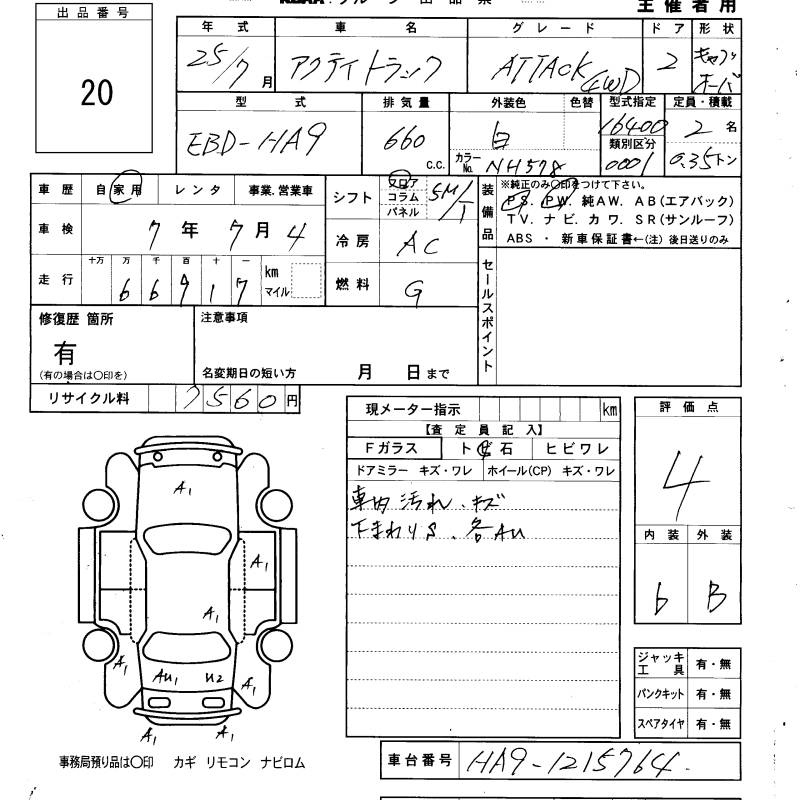 出品番号
20
主催者用
年式 車名 グレード ドア 形状
25/7月 アクティトラック ATTACK 4WD 2 キャブオーバ
型式 排気量 外装色 色替 型式指定 定員・積載
EBD-HA9 660 c.c. 白 16400 2名
類別区分
カラーNo. NH578 0001 0.35トン
車歴 自家用 レンタ 事業.営業車
シフト フロア コラム パネル 5M/T
装備品 ※純正のみ〇印をつけて下さい。
PS. PW. 純AW. AB(エアバック)
TV. ナビ. カワ. SR(サンルーフ)
ABS ・ 新車保証書←(注) 後日送りのみ
車検 7年7月4
冷房 AC
走行 十万 万 千 百 十 一 km マイル
66917
燃料 G
セールスポイント
修復歴 箇所 注意事項
有
(有の場合は〇印を) 名変期日の短い方 月 日まで
リサイクル料 7560円
現メーター指示 km
【査定員記入】
Fガラス トビ石 ヒビワレ
ドアミラー キズ・ワレ ホイール(CP) キズ・ワレ
車内汚れ、キズ
下まわりS、各AU
評価点
4
内装 外装
6 B
A1
A1
A1
A1 AU1 U2 A1
A1 A1
ジャッキ工具 有・無
パンクキット 有・無
スペアタイヤ 有・無
事務局預り品は〇印 カギ リモコン ナビロム
車台番号 HA9-1215764.